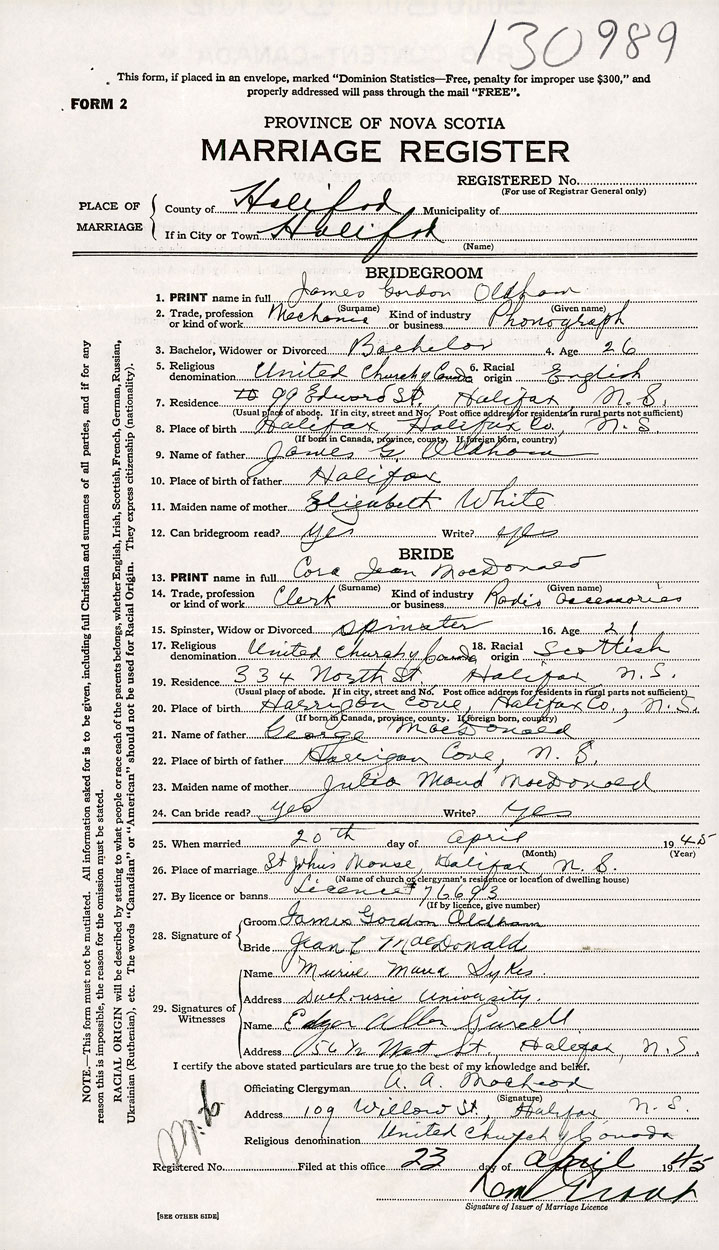 130989
This form, if placed in an envelope, marked "Dominion Statistics—Free, penalty for improper use $300," and
properly addressed will pass through the mail "FREE".
FORM 2
PROVINCE OF NOVA SCOTIA
MARRIAGE REGISTER
REGISTERED No.
(For use of Registrar General only)
PLACE OF MARRIAGE
County of Halifax Municipality of
If in City or Town Halifax
(Name)
BRIDEGROOM
1. PRINT name in full James Gordon Oldham
(Surname) (Given name)
2. Trade, profession or kind of work Mechanic Kind of industry or business Phonograph
3. Bachelor, Widower or Divorced Bachelor 4. Age 26
5. Religious denomination United Church of Canada 6. Racial origin English
7. Residence 99 Edward St. Halifax, N.S.
(Usual place of abode. If in city, street and No. Post office address for residents in rural parts not sufficient)
8. Place of birth Halifax Halifax Co., N.S.
(If born in Canada, province, county. If foreign born, country)
9. Name of father James G. Oldham
10. Place of birth of father Halifax
11. Maiden name of mother Elizabeth White
12. Can bridegroom read? yes Write? yes
BRIDE
13. PRINT name in full Cora Jean MacDonald
(Surname) (Given name)
14. Trade, profession or kind of work Clerk Kind of industry or business Radio accessories
15. Spinster, Widow or Divorced Spinster 16. Age 21
17. Religious denomination United Church of Canada 18. Racial origin Scottish
19. Residence 334 North St. Halifax N.S.
(Usual place of abode. If in city, street and No. Post office address for residents in rural parts not sufficient)
20. Place of birth Harrigan Cove, Halifax Co., N.S.
(If born in Canada, province, county. If foreign born, country)
21. Name of father George MacDonald
22. Place of birth of father Harrigan Cove, N.S.
23. Maiden name of mother Julia Maud MacDonald
24. Can bride read? yes Write? yes
25. When married 20th day of April 1945
(Month) (Year)
26. Place of marriage St Johns Manse, Halifax N.S.
(Name of church or clergyman's residence or location of dwelling house)
27. By licence or banns Licence # 76693
(If by licence, give number)
28. Signature of
Groom James Gordon Oldham
Bride Jean C MacDonald
29. Signatures of Witnesses
Name Muriel Maria Sykes
Address Dalhousie University.
Name Edgar Allan Purcell
Address 156½ West St., Halifax, N.S.
I certify the above stated particulars are true to the best of my knowledge and belief.
Officiating Clergyman A. A. MacLeod
(Signature)
Address 109 Willow St, Halifax N.S.
Religious denomination United Church of Canada
Registered No. Filed at this office 23 day of April 1945
Signature of Issuer of Marriage Licence
[SEE OTHER SIDE]
NOTE.—This form must not be mutilated. All information asked for is to be given, including full Christian and surnames of all parties, and if for any
reason this is impossible, the reason for the omission must be stated.
RACIAL ORIGIN will be described by stating to what people or race each of the parents belongs, whether English, Irish, Scottish, French, German, Russian,
Ukrainian (Ruthenian), etc. The words "Canadian" or "American" should not be used for Racial Origin. They express citizenship (nationality).